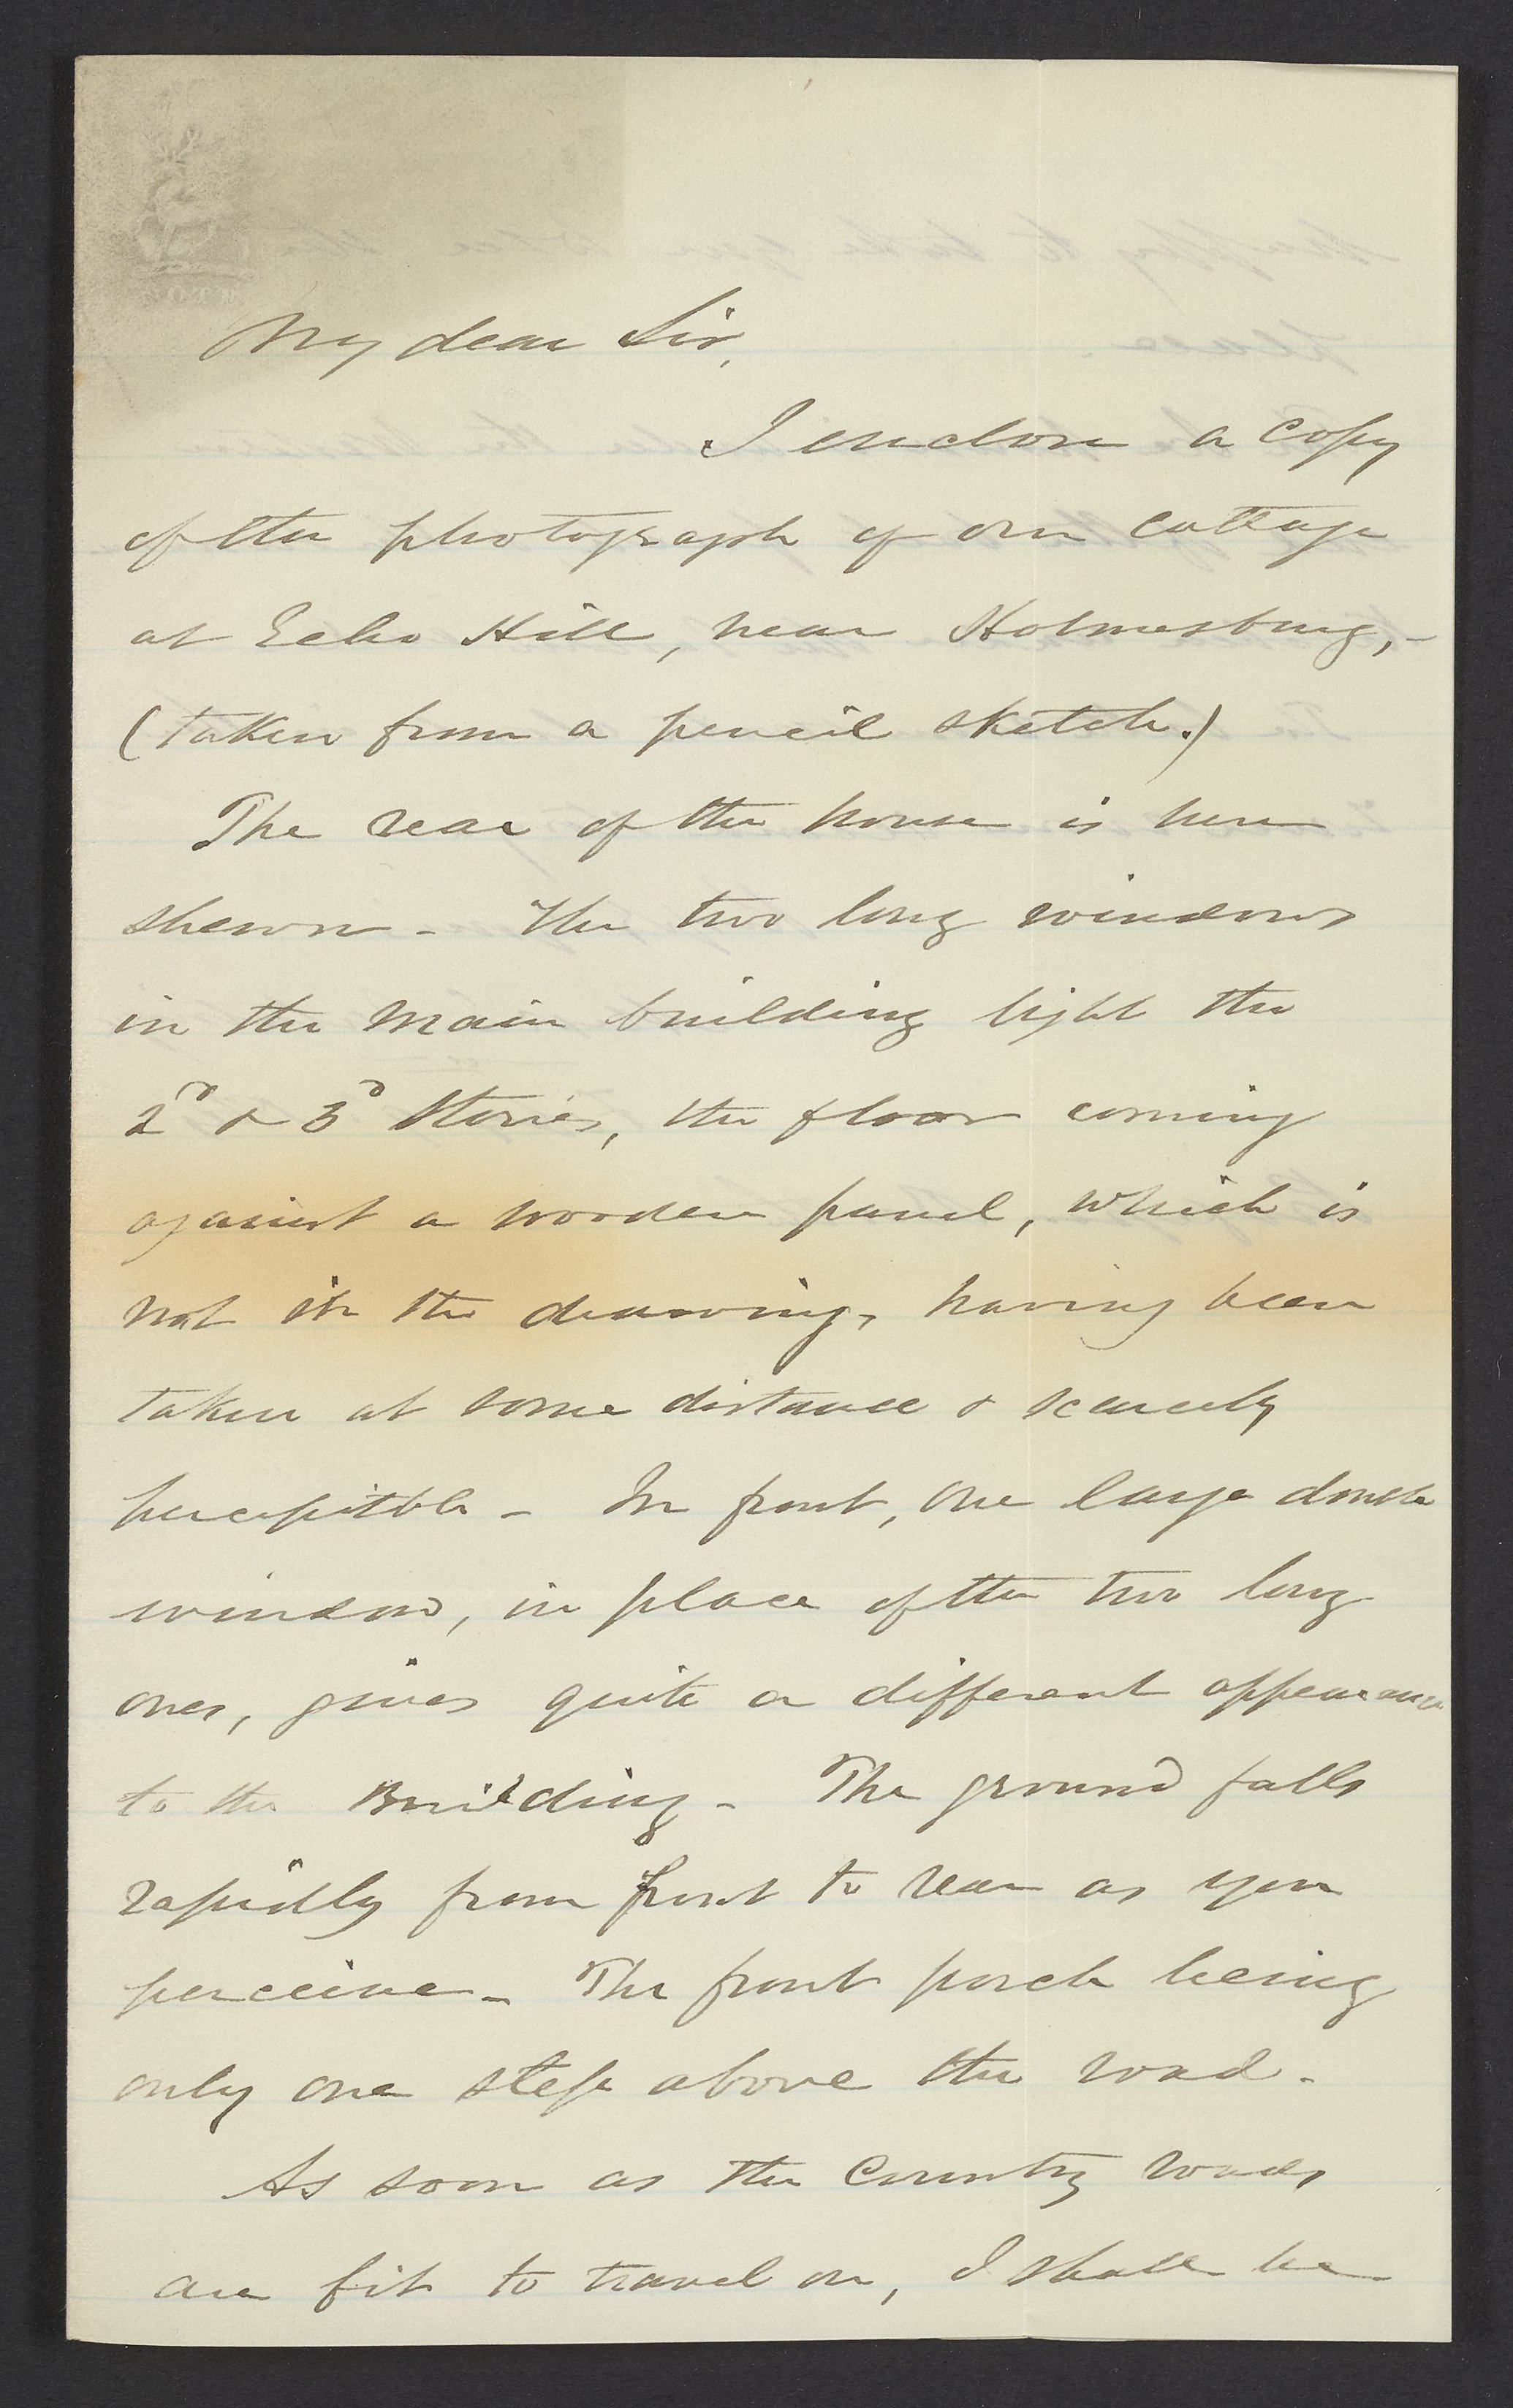 My dear Sir,
I enclose a copy
of the photograph of our cottage
at Echo Hill, near Holmesburg,-
(taken from a pencil sketch.)
The rear of the house is here
shewn - The two long windows
in the main building light the
2d & 3d Stories, the floor coming
against a wooden panel, which is
not in the drawing, having been
taken at some distance & scarcely
perceptible - In front, one large double
window, in place of the two long
ones, gives quite a different appearance
to the Building - The ground falls
rapidly from front to rear as you
perceive - The front porch being
only one step above the road.
As soon as the Country roads
are fit to travel on, I shall be